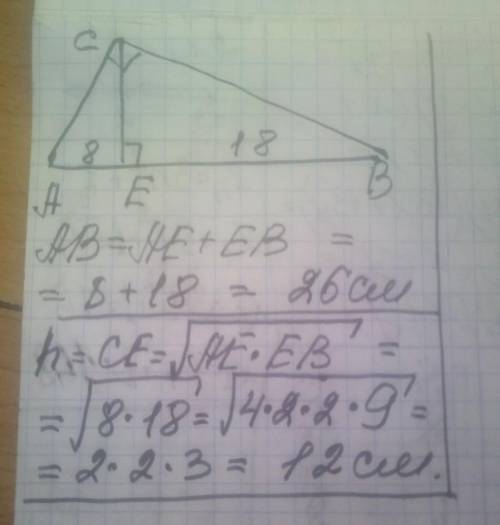 C
8 18
A E B
AB = AE + EB =
= 8 + 18 = 26 см
h = CE = √AE · EB =
= √8 · 18 = √4 · 2 · 2 · 9 =
= 2 · 2 · 3 = 12 см.